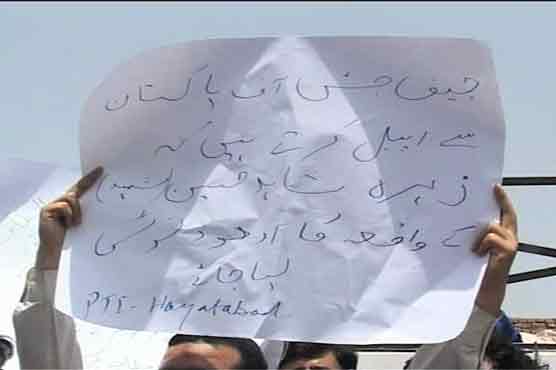 چیف جسٹس آف پاکستان
سے اپیل کرتے ہیں کہ
زہرہ شاہد حسین (شہید)
کے واقعہ کا از خود نوٹس
لیا جائے
PTI - Hayatabad